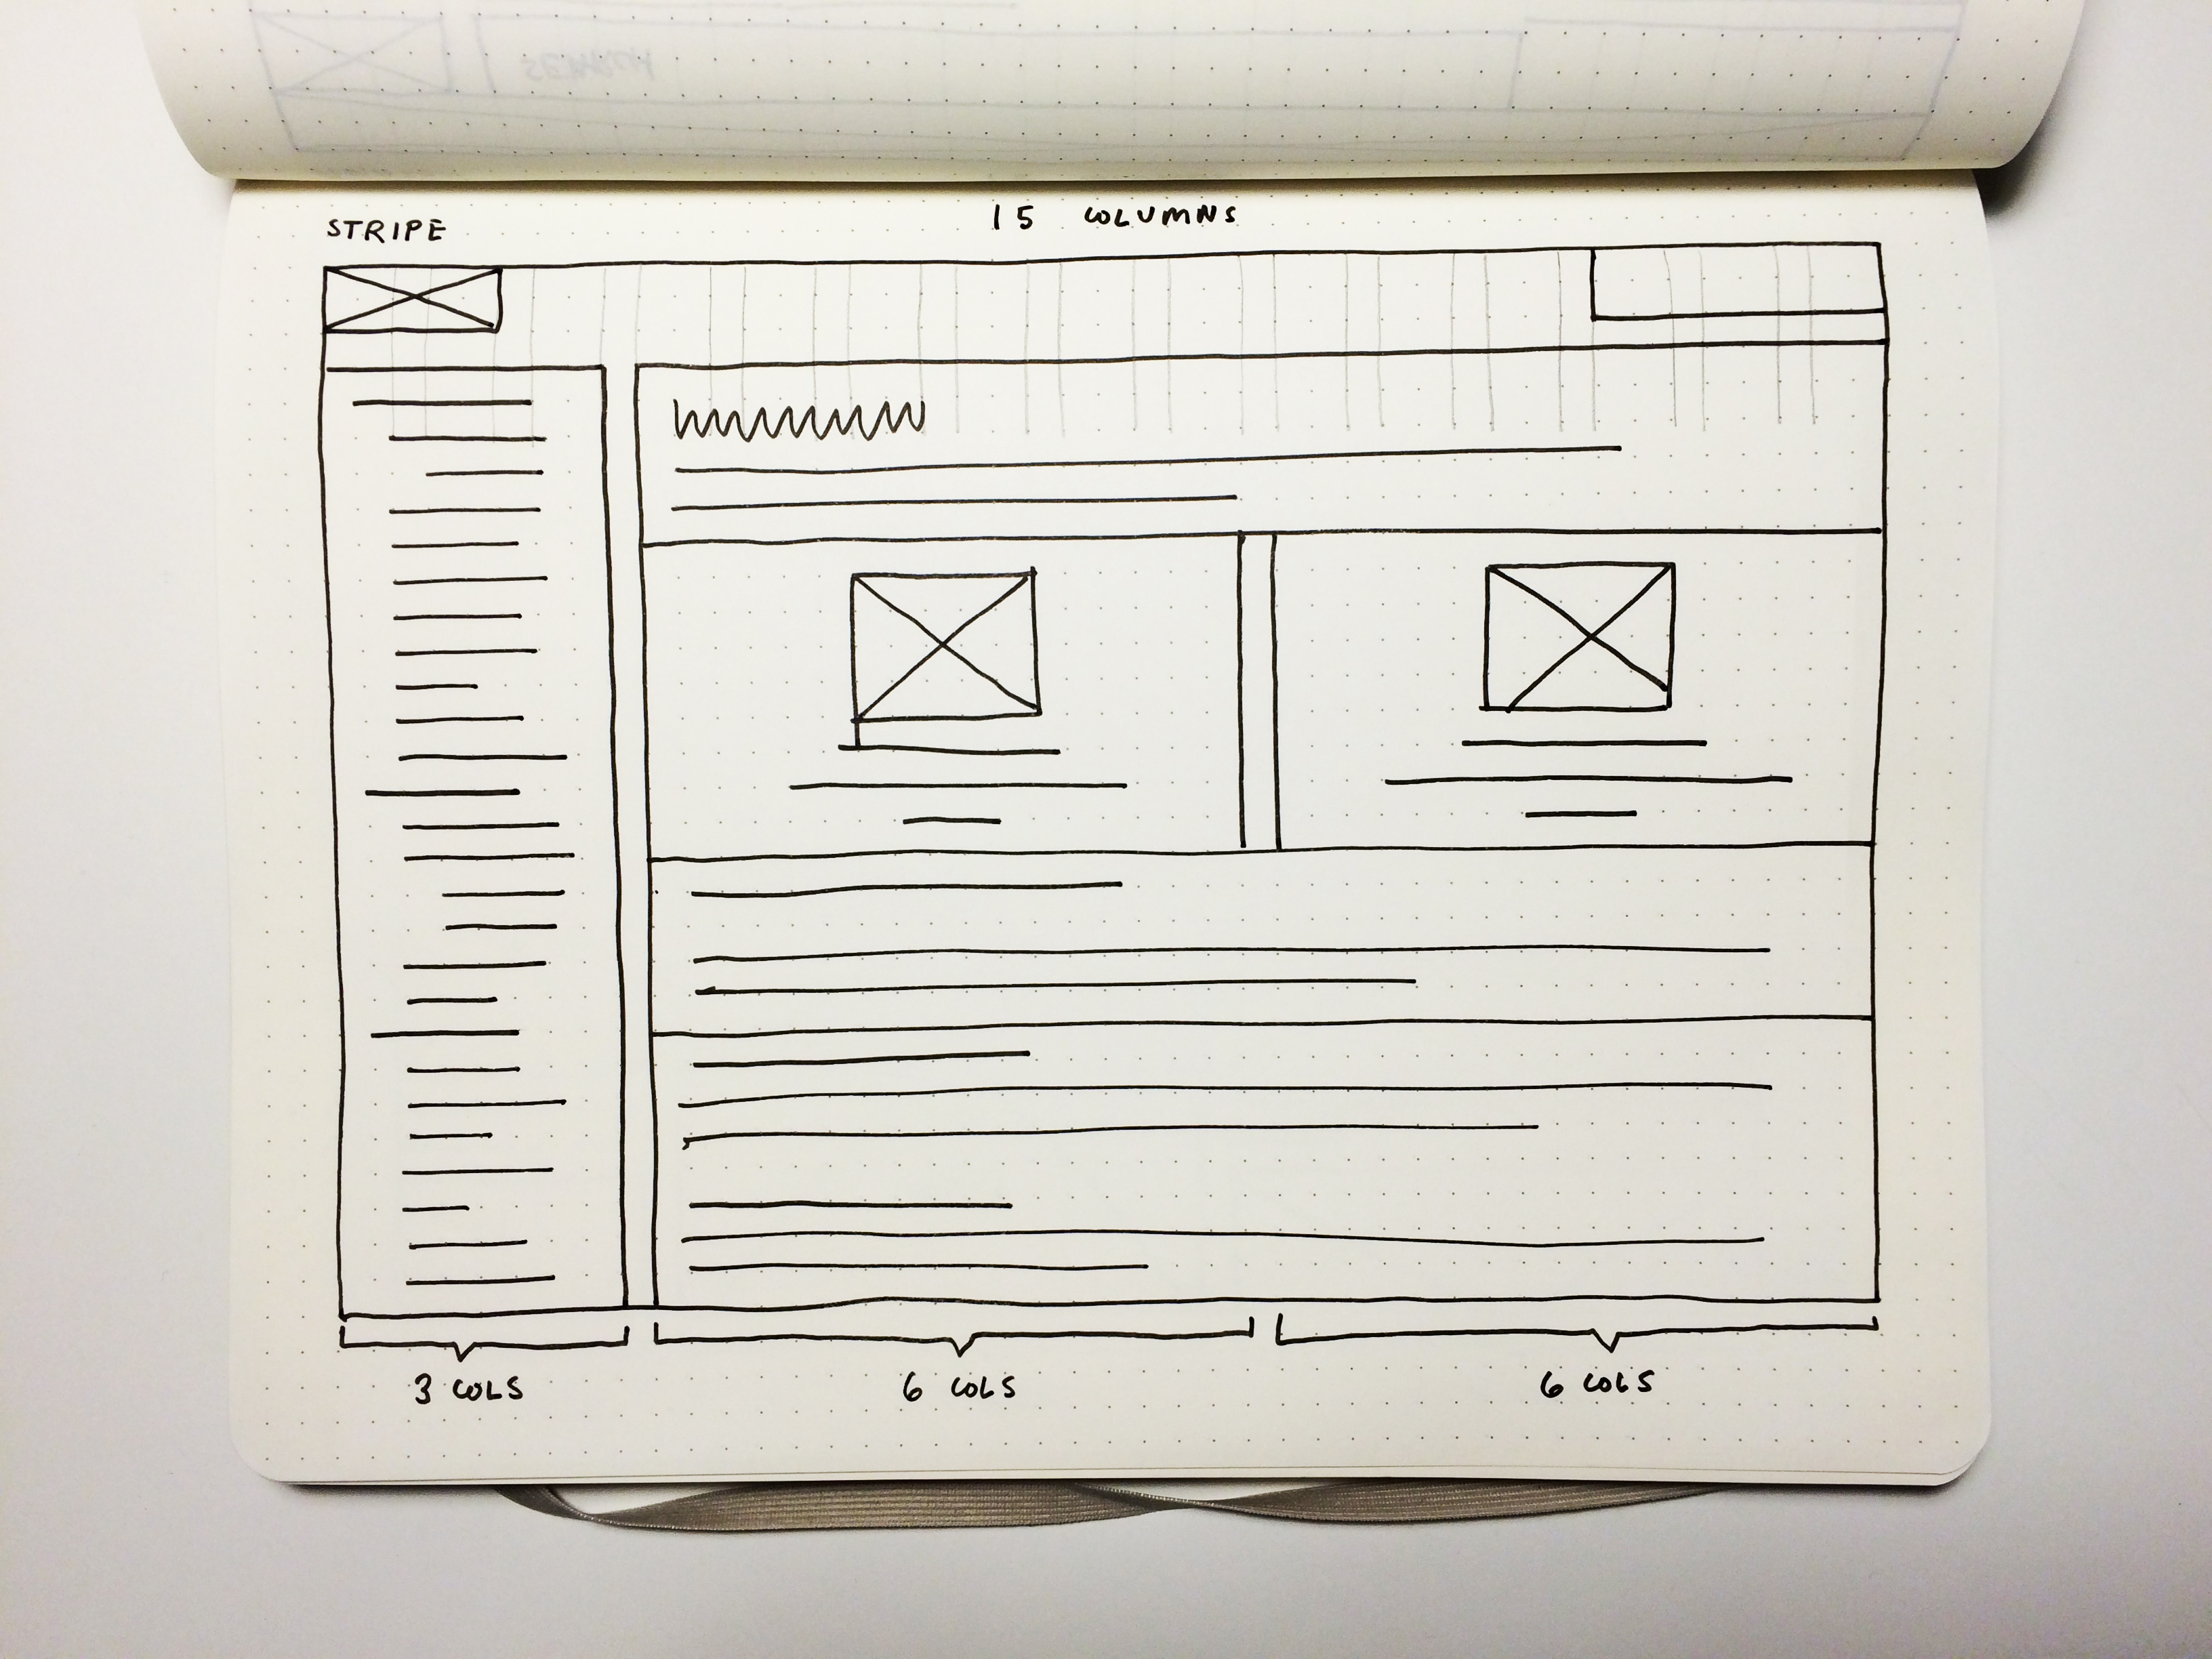 STRIPE
15 COLUMNS
3 COLS
6 COLS
6 COLS